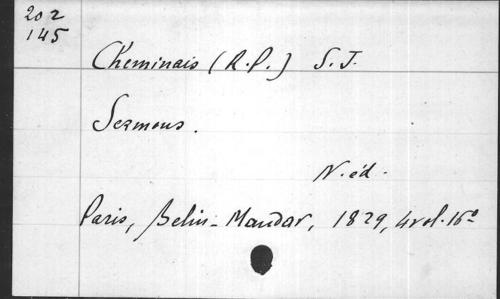 202
145
Cheminais (R.P.) S.J.
Sermons.
N. éd.
Paris, Belin-Mandar, 1829, 4 vol. 16º